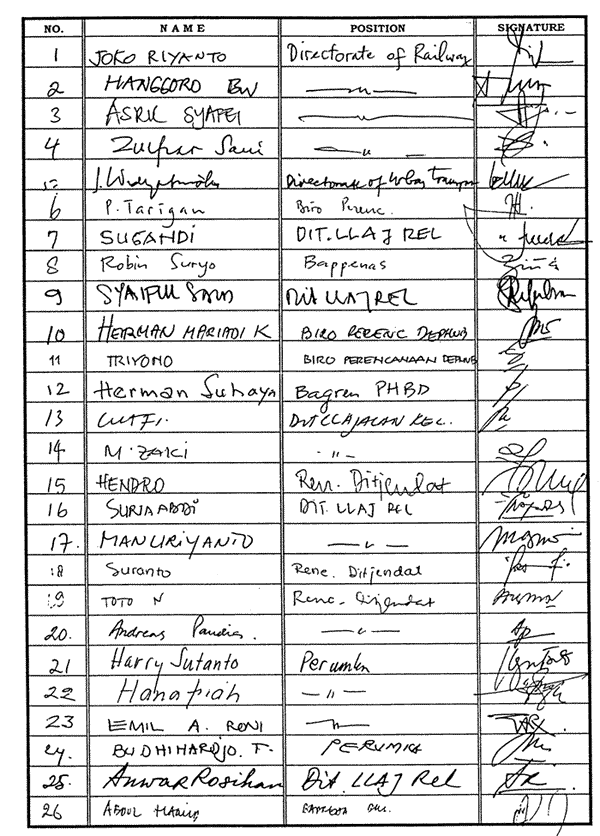 NO. NAME POSITION SIGNATURE
1 JOKO RIYANTO Directorate of Railway
2 HANGGORO BW —〃—
3 ASRIL SYAFEI —〃—
4 Zulfikar Sani —〃—
5 J. Directorate of Urban Transp
6 P. Tarigan Biro Perenc.
7 SUGANDI DIT. LLAJ REL
8 Robin Suryo Bappenas
9 SYAIFUL Dit LLAJ REL
10 HERMAN MARIADI K BIRO PERENC DEPHUB
11 TRIYONO BIRO PERENCANAAN DEPHUB
12 Herman Suhaya Bagren PHBD
13 LUTFI. DIT LLAJALAN REL.
14 M. ZAKI - 〃 -
15 HENDRO Ren. Ditjendat
16 SURIA ABDI DIT. LLAJ REL
17. MANURIYANTO —〃—
18 Suranto Renc. Ditjendat
19 TOTO N Renc. Ditjendat
20. Andreas —〃—
21 Harry Sutanto Perumka
22 Hanafiah —〃—
23 EMIL A. RONI —〃—
24. BUDHIHARDJO. T. PERUMKA
25. Anwar Rosihan Dit. LLAJ Rel
26 ABDUL